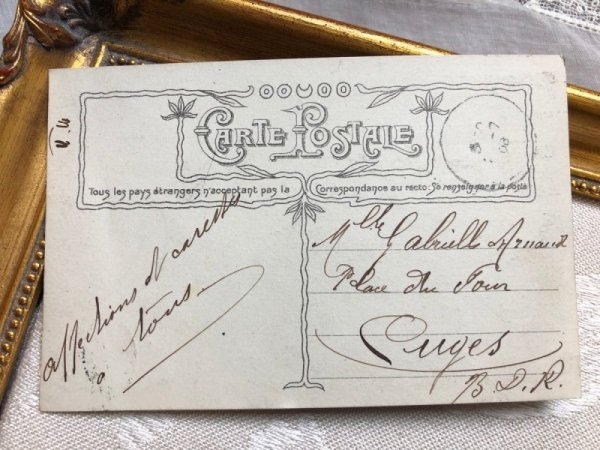 CARTE POSTALE
Tous les pays étrangers n'acceptent pas la Correspondance au recto: Se renseigner à la poste
affections et caresses
à tous
Mlle Gabrielle Arnaud
Place du Four
Cuges
B. D. R.